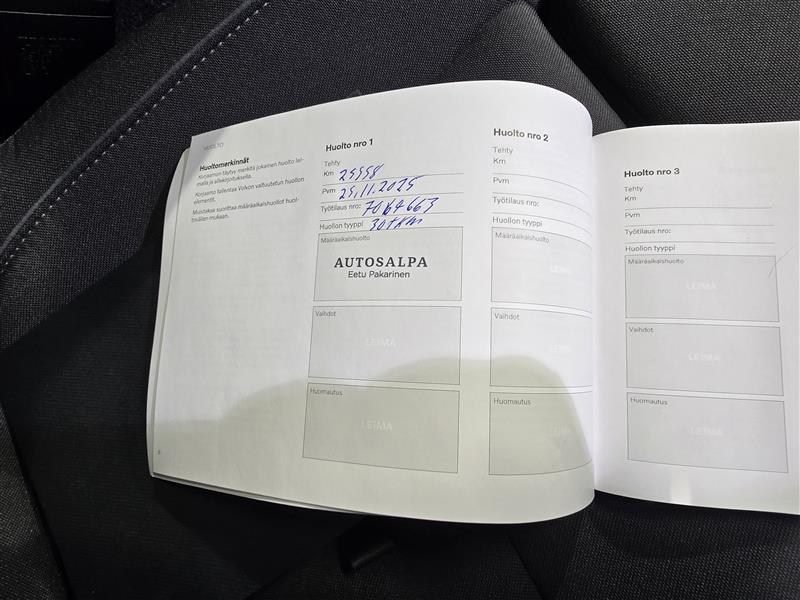 HUOLTO
Huoltomerkinnät
Korjaamon täytyy merkitä jokainen huolto lei-
malla ja allekirjoituksella.
Korjaamo tallentaa Volvon valtuutetun huollon
elementit.
Muistakaa suorittaa määräaikaishuollot huol-
tovälien mukaan.
8
Huolto nro 1
Tehty
Km 29998
Pvm 25.11.2025
Työtilaus nro: 7064663
Huollon tyyppi 30tkm
Määräaikaishuolto
AUTOSALPA
Eetu Pakarinen
Vaihdot
LEIMA
Huomautus
LEIMA
Huolto nro 2
Tehty
Km
Pvm
Työtilaus nro:
Huollon tyyppi
Määräaikaishuolto
LEIMA
Vaihdot
LEIMA
Huomautus
LEIMA
Huolto nro 3
Tehty
Km
Pvm
Työtilaus nro:
Huollon tyyppi
Määräaikaishuolto
LEIMA
Vaihdot
LEIMA
Huomautus
LEIMA